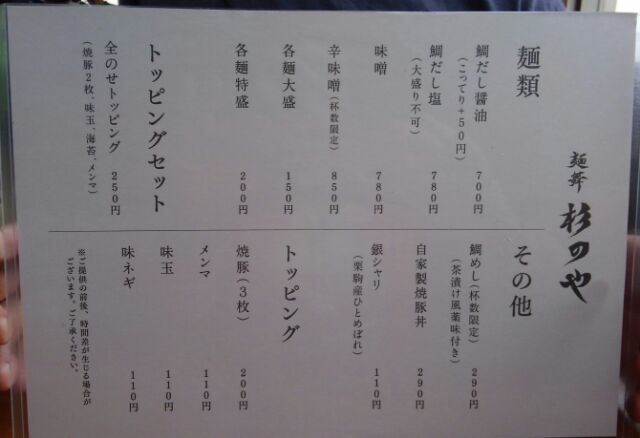 麺舞 杉のや
麺類
鯛だし醤油 700円
（こってり+50円）
鯛だし塩 780円
（大盛り不可）
味噌 780円
辛味噌（杯数限定） 850円
各麺大盛 150円
各麺特盛 200円
トッピングセット
全のせトッピング 250円
（焼豚2枚、味玉、海苔、メンマ）
その他
鯛めし（杯数限定） 290円
（茶漬け風薬味付き）
自家製焼豚丼 290円
銀シャリ 110円
（栗駒産ひとめぼれ）
トッピング
焼豚（3枚） 200円
メンマ 110円
味玉 110円
味ネギ 110円
※ご提供の前後、時間差が生じる場合が
ございます。ご了承ください。